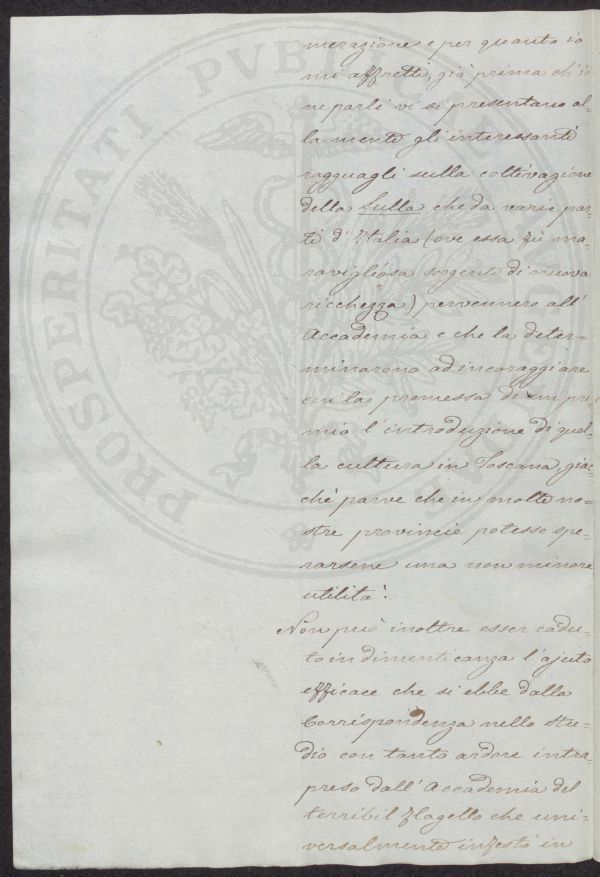 merazione e per quanto io
mi affretti, già prima ch'io
ne parli vi si presentano al-
la mente gli interessanti
ragguagli sulla coltivazione
della Sulla che da varie par-
ti d'Italia (ove essa fù ma-
ravigliosa sorgente di nuova
ricchezza) pervennero all'
Accademia e che la deter-
minarono ad incoraggiare
con la promessa di un pre-
mio l'introduzione di quel-
la cultura in Toscana, giac-
chè parve che in molte no-
stre provincie potesse spe-
rarsene una non minore
utilità.
Non può inoltre esser cadu-
to in dimenticanza l'ajuto
efficace che si ebbe dalla
Corrispondenza nello stu-
dio con tanto ardore intra-
preso dall'Accademia del
terribil flagello che uni-
versalmente infestò in
PROSPERITATI PVBLICAE